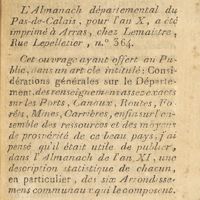 L'Almanach départemental du
Pas-de-Calais, pour l'an X, a été
imprimé à Arras, chez Lemaistre,
Rue Lepelletier, n.° 364.
Cet ouvrage ayant offert au Pu-
blic, dans un article intitulé: Consi-
dérations générales sur le Départe-
ment, des renseignemens assez exacts
sur les Ports, Canaux, Routes, Fo-
rêts, Mines, Carrières, enfin sur l'en-
semble des ressources et des moyens
de prospérité de ce beau pays, j'ai
pensé qu'il était utile de publier,
dans l'Almanach de l'an XI, une
description statistique de chacun,
en particulier, des six Arrondisse-
mens communaux qui le composent.